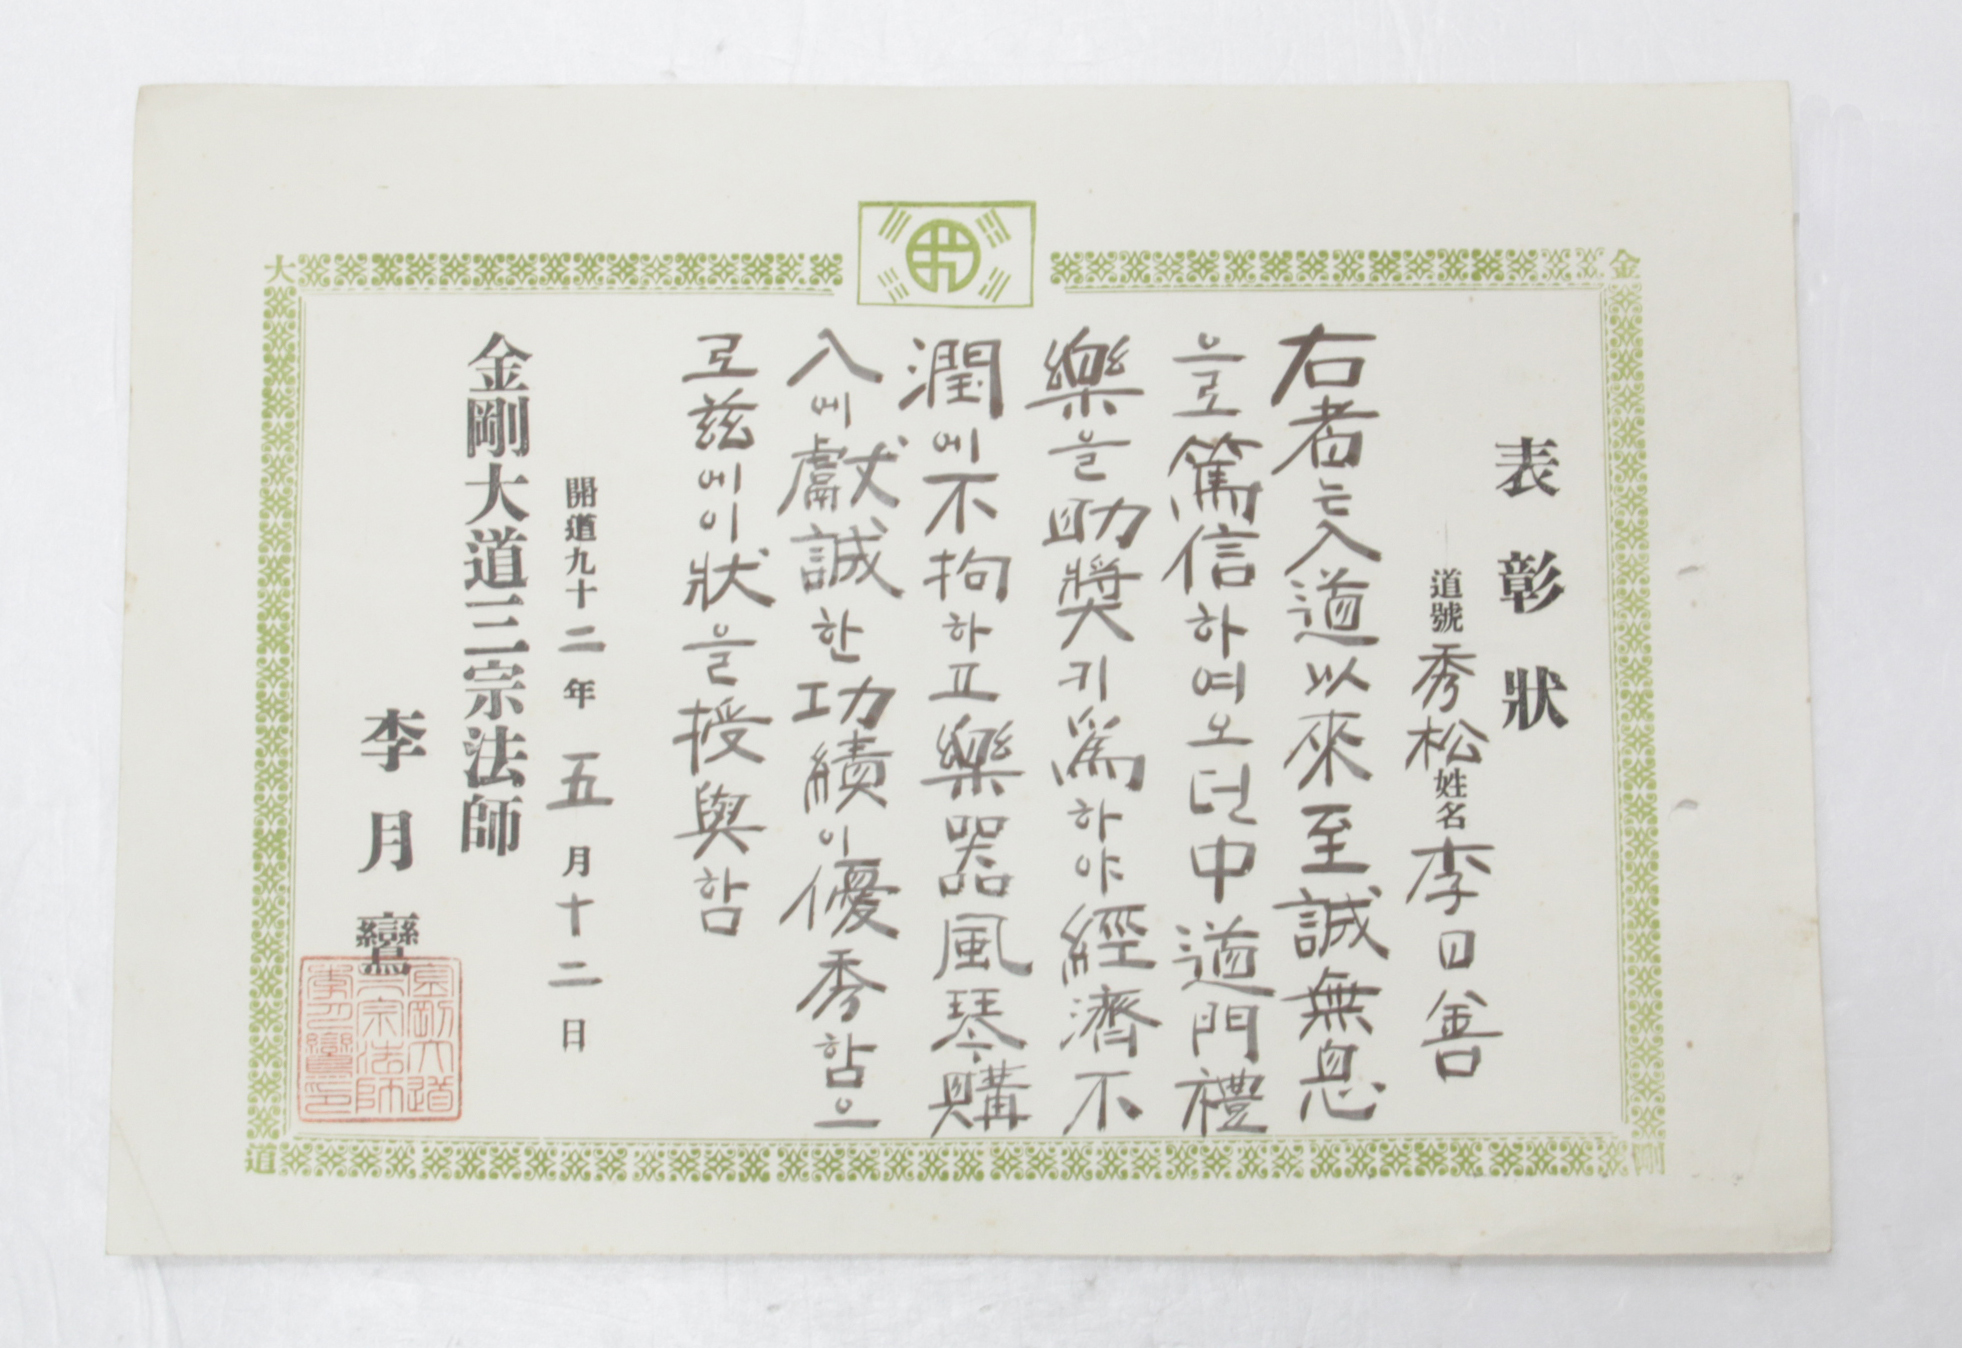 表彰狀
道號 秀松 姓名 李日善
右者는入道以來至誠無息
으로篤信하여오던中道門禮
樂을助奬키爲하야經濟不
潤에不拘하고樂器風琴購
入에獻誠한功績이優秀함으
로玆에이狀을授與함
開道九十二年 五月十二日
金剛大道三宗法師
李月鸞
金剛大道
三宗法師
李月鸞印
金
剛
大
道